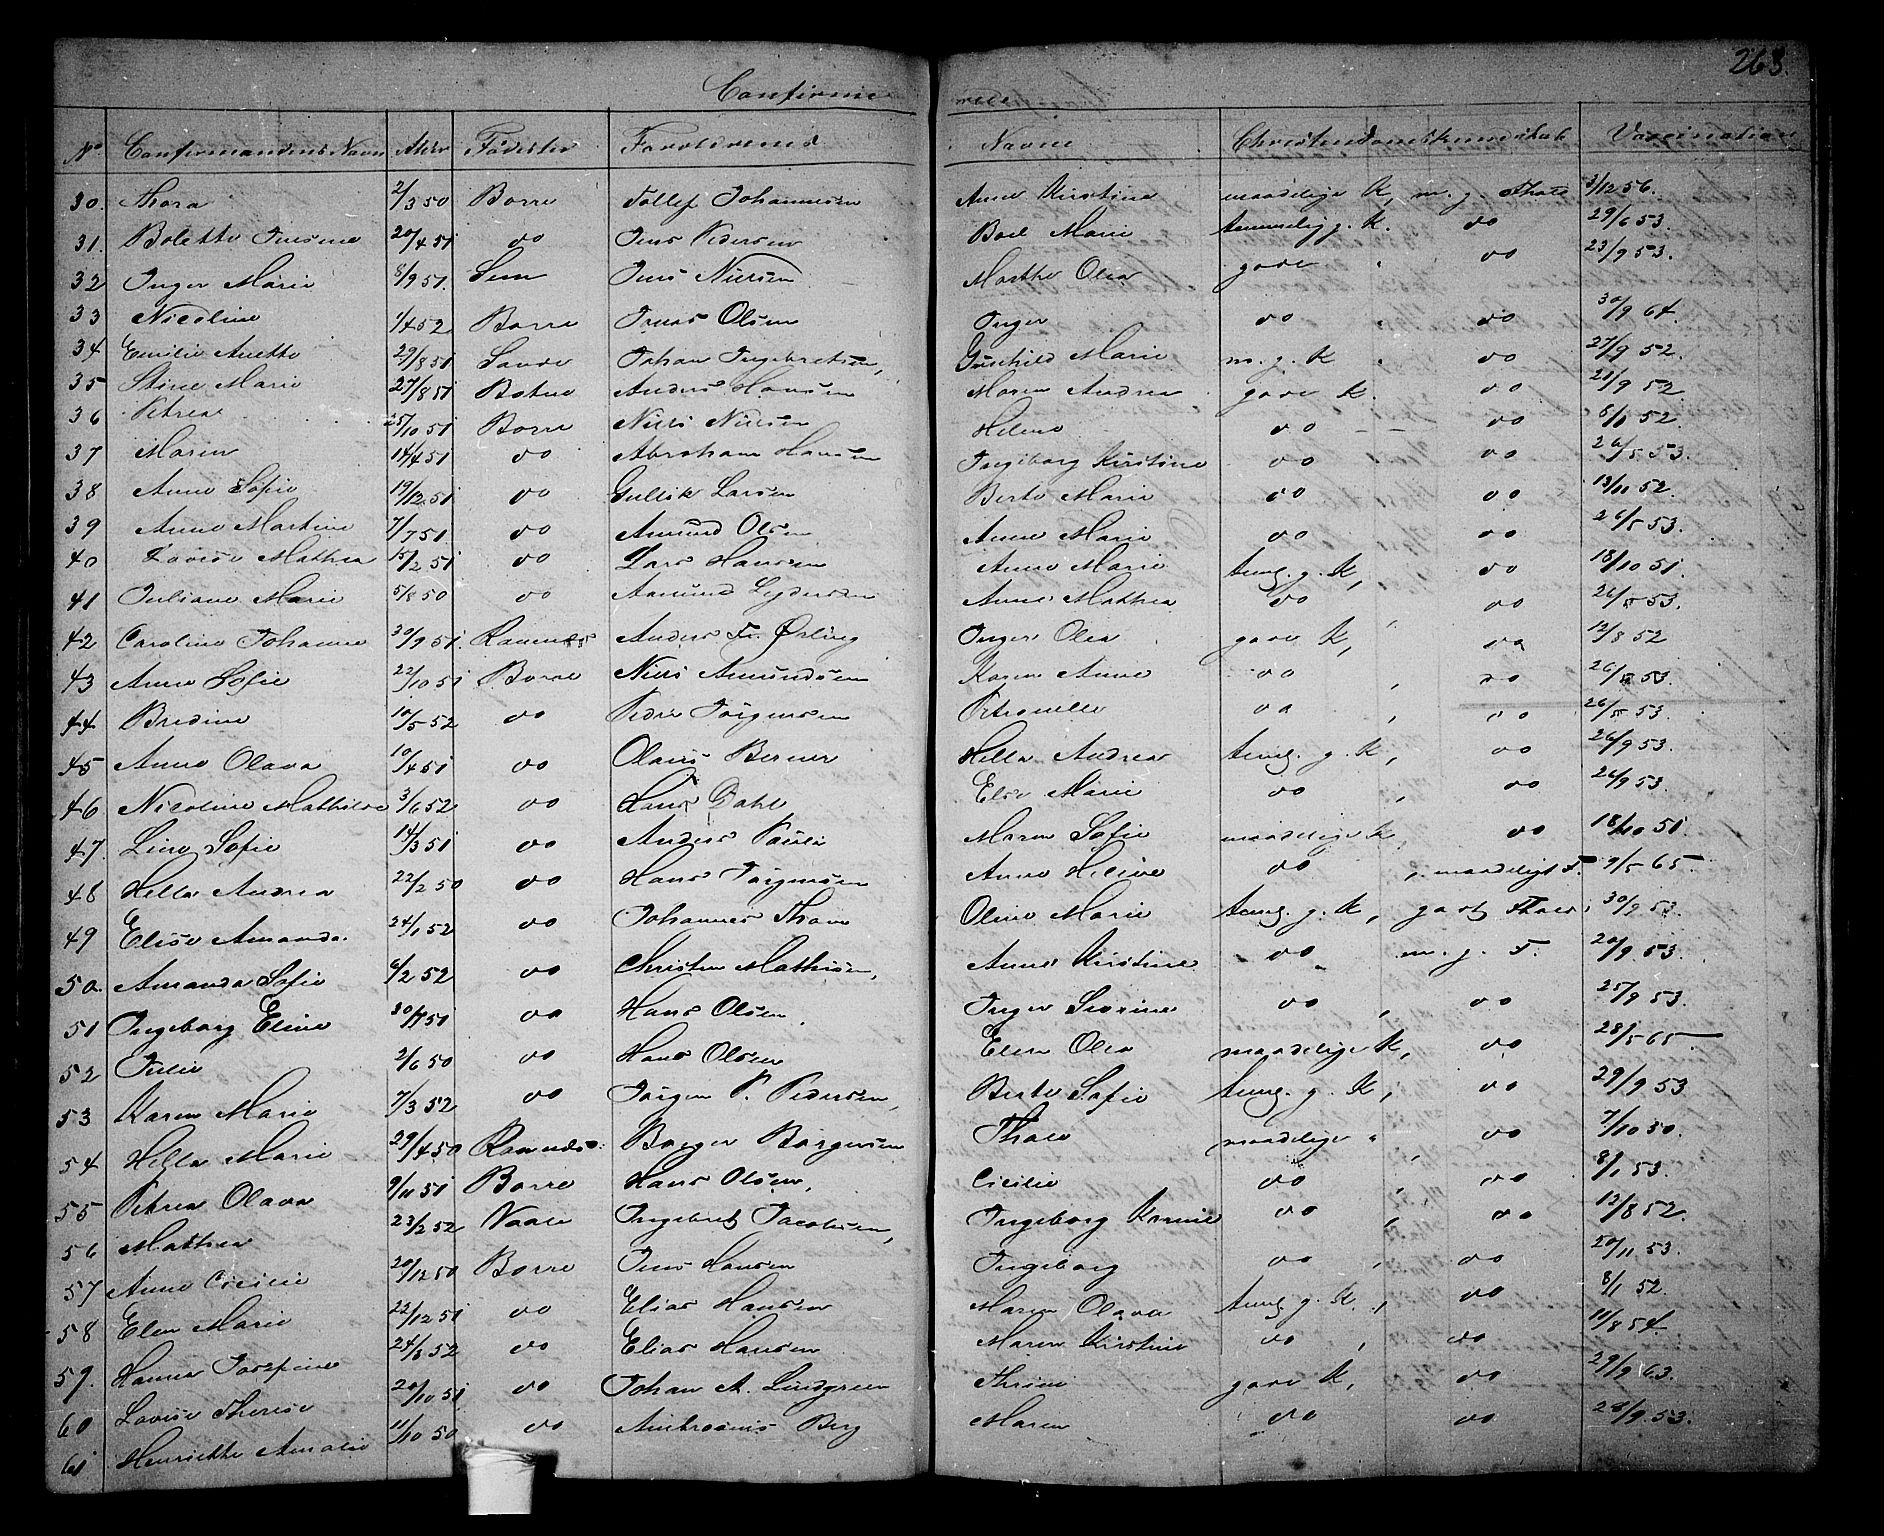 263.
Confirmerede
No Confirmandens Navn Alder Fødested Forældrenes Navne Christendomskundskab Vaccination
30. Thora 2/3 50 Borre Tollef Johannesen Anne Kirstine maadelige K, m. g. Flid 3/12 56.
31. Bolette Jensine 20/4 51 do Jens Pedersen Boel Marie temmelig g. K. do 29/6 53.
32 Inger Marie 8/9 51. Sem Jens Nielsen Marthe Olea gode do 23/9 53.
33 Nicoline 1/4 52 Borre Jonas Olsen Inger do do 30/9 64.
34 Emilie Anette 29/8 51 Sande Johan Ingebretsen, Gunhild Marie m. g. K do 27/9 52.
35 Stine Marie 27/8 51 Botne Anders Hansen Maren Andrea gode K. do 21/9 52.
36 Petrea 25/10 51 Borre Niels Nielsen Helene do do 8/10 52.
37 Maren 14/4 51 do Abraham Hansen Ingeborg Kirstine do do 26/5 53.
38 Anne Sofie 19/12 51 do Gullik Larsen Berte Marie do do 13/11 52.
39 Anne Martine 7/7 51 do Amund Olsen Anne Marie do do 26/5 53.
40 Lovise Mathea 15/2 51 do Lars Hansen Anne Marie teml. g. K, do 18/10 51.
41 Juliane Marie 5/8 50 do Amund Lydersen Anne Mathea do do 26/5 53.
42 Caroline Johanne 30/9 51. Ramnæs Anders Fr. Ørling Inger Olea gode K, do 12/8 52
43 Anne Sofie 22/10 51 Borre Niels Amundsen Karen Anne do do 26/5 53.
44 Bredine 10/5 52 do Peder Jørgensen Petronelle do do 26/5 53.
45 Anne Olava 10/4 51 do Olaus Berner Hella Andrea teml. g. K, do 26/9 53.
46 Nicoline Mathilde 3/6 52 do Hans Dahl Else Marie do do 26/9 53.
47. Line Sofie 14/3 51 do Anders Maren Sofie maadelige K, do 18/10 51.
48 Hella Andrea 22/2 50 do Hans Jørgensen Anne Helene do maadeligt F. 9/5 65
49 Elise Amanda. 24/1 52 do Johannes Anne Oline Marie teml. g. K, godt Flid 30/9 53.
50. Amanda Sofie 6/2 52 do Christen Mathisen, Anne Kirstine do m. g. F. 20/9 53.
51 Ingeborg Eline 51 do Hans Olsen, Inger Severine do do 25/9 53.
52 Julie 2/6 50 do Hans Olsen Elen Olea maadelige K, do 28/5 65
53 Karen Marie 7/3 52 do Jørgen P. Pedersen, Berte Sofie teml. g. K, do 29/9 53
54 Hella Marie 29/4 50 Ramnæs. Børger Børgersen Thale maadelige do 7/10 50.
55 Petrea Olava 9/11 51 Borre Hans Olsen, Cicilie do do 8/1 53.
56 Mathea 23/2 52 Vaale Ingebret Jacobsen, Ingeborg Karine do do 12/8 52.
57 Anne Cicilie 20/12 50 Borre Jens Hansen Ingeborg do do 20/11 53.
58 Elen Marie 22/12 51 do Elias Hansen Maren Olava teml. g. K., do 8/1 52
59. Hanna Josefine 24/6 52 do Elias Hansen Maren Kirstine do do 11/8 54.
60 Lovise Therese 20/10 51 do Johan A. Lindgreen Thrine gode K, do 29/9 63.
61 Henriette Amalie 11/10 50 do Ambrosius Berg Maren do do 28/9 53.